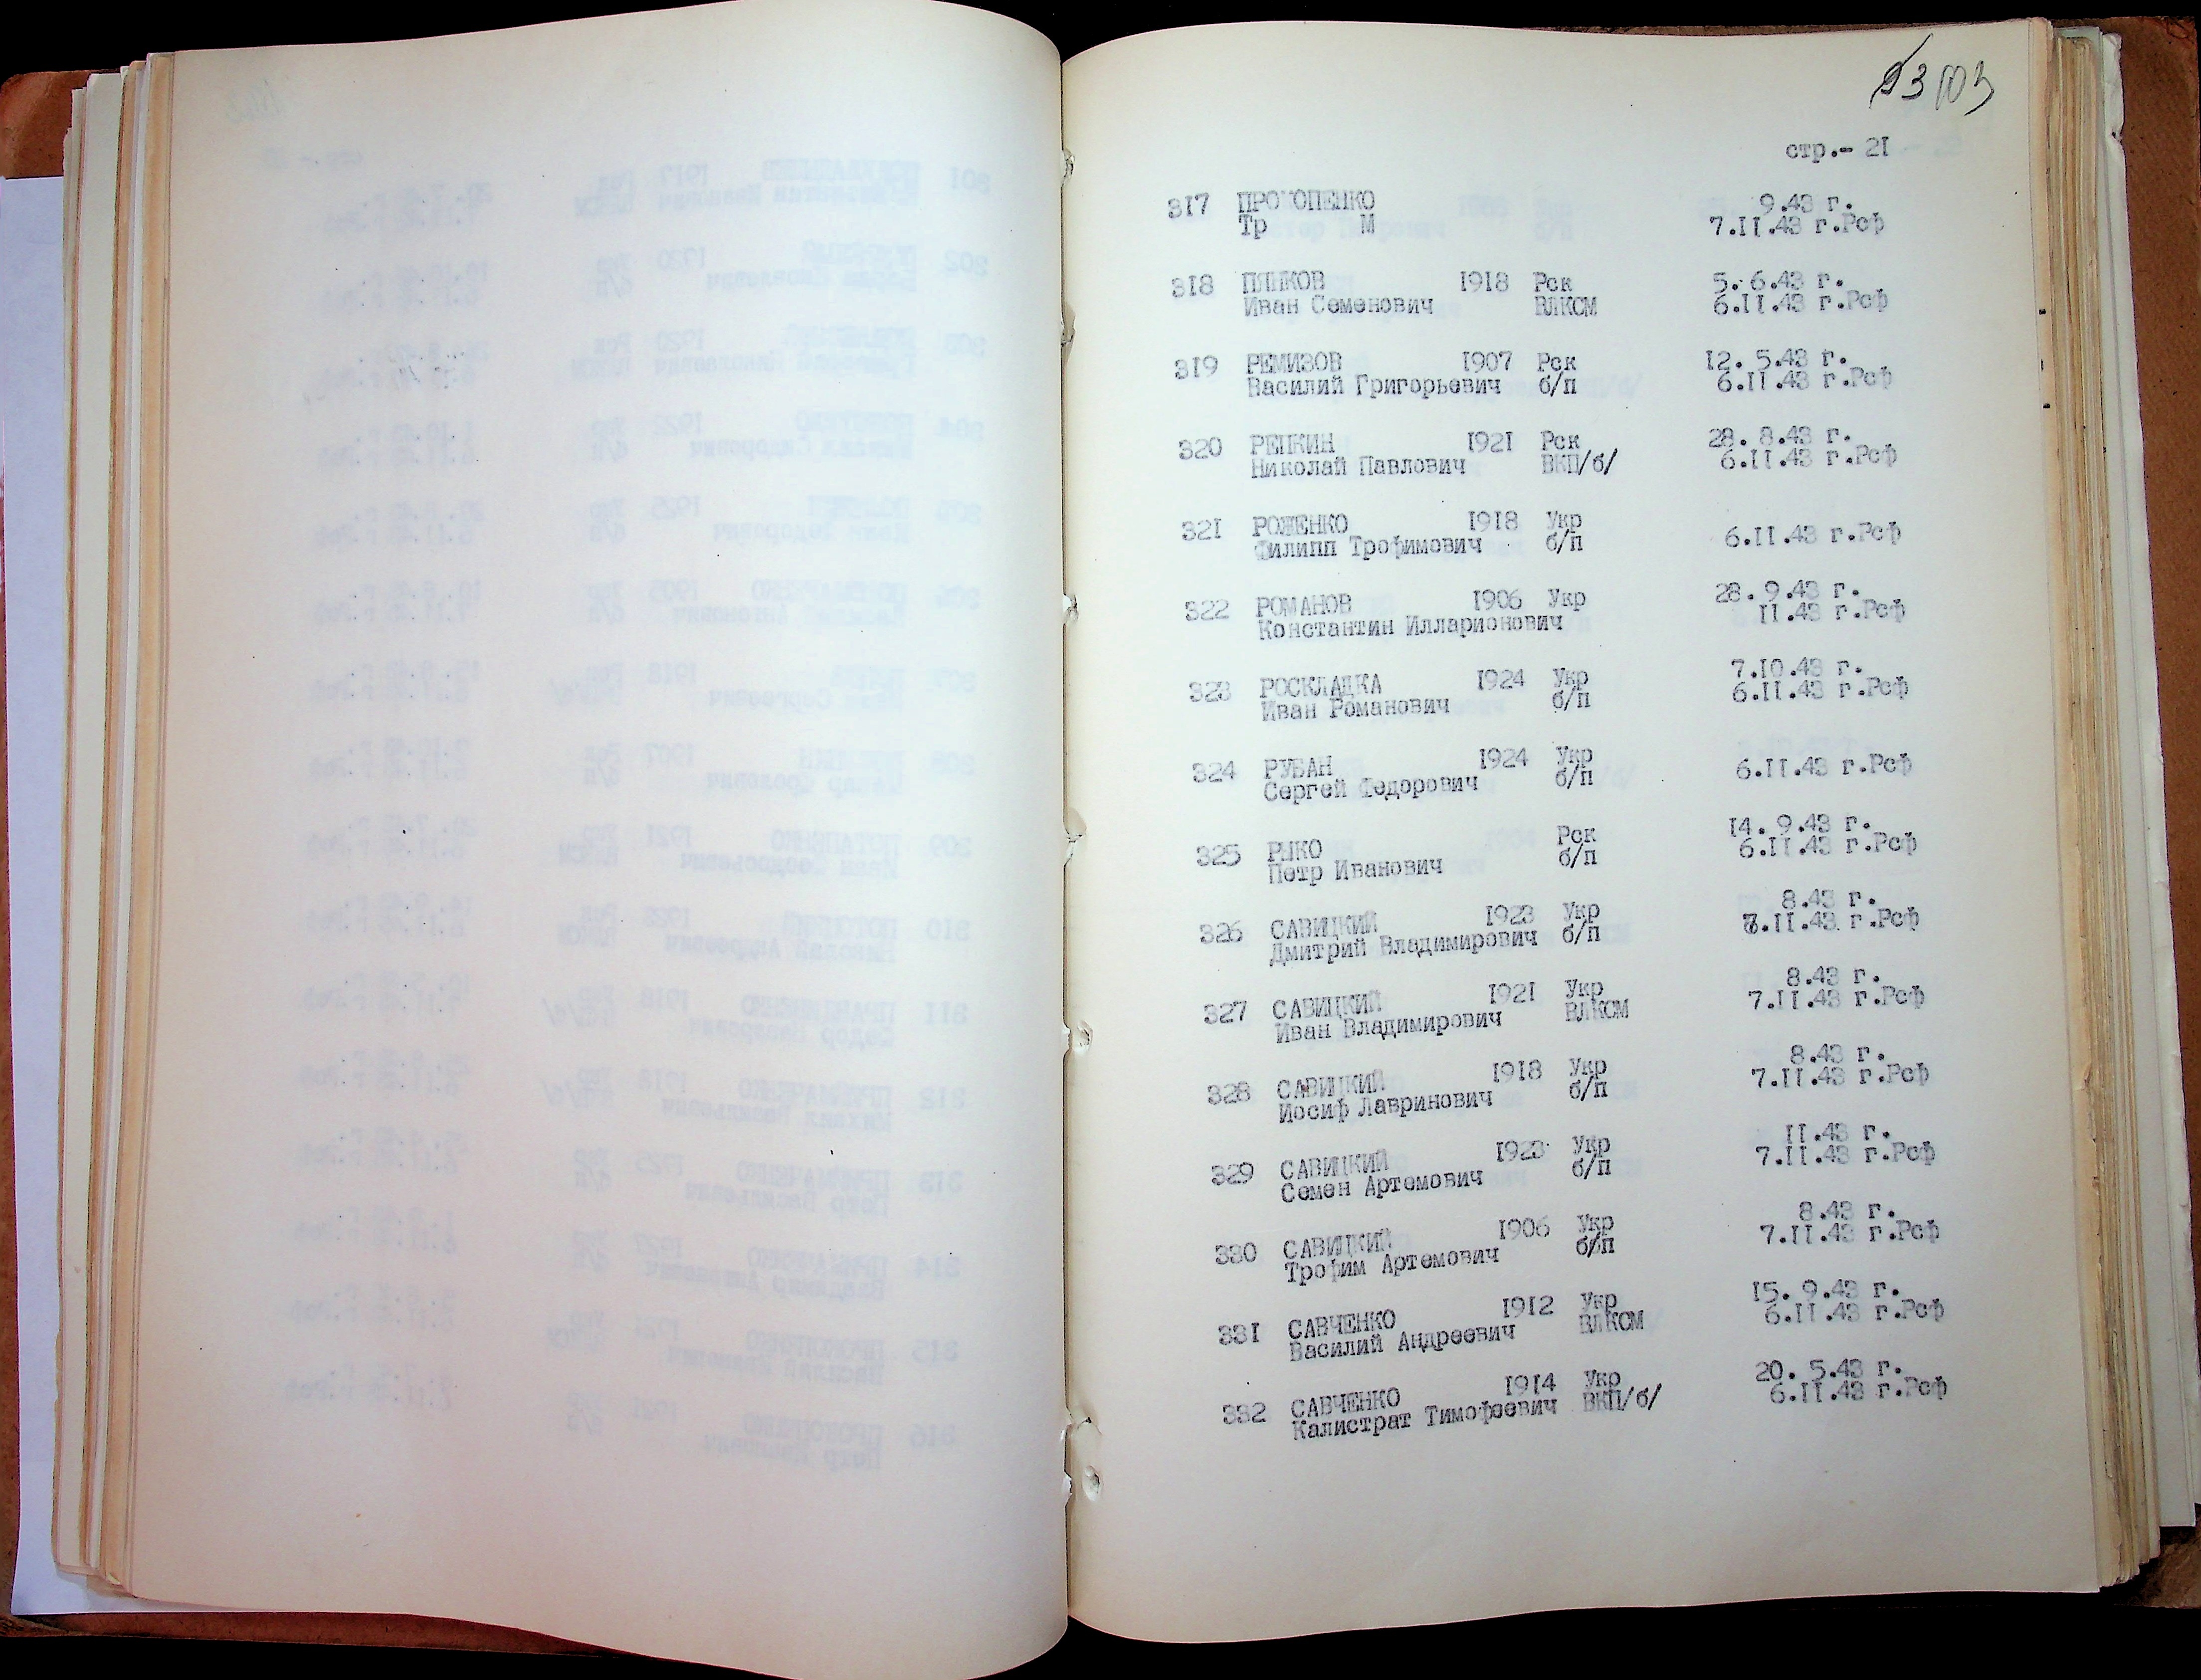 103
стр.- 21
317 ПРОКОПЕНКО 9.43 г.
Тр М 7.II.43 г.Рсф
318 ПЯНКОВ 1918 Рск 5. 6.43 г.
Иван Семенович ВЛКСМ 6.II.43 г.Рсф
319 РЕМИЗОВ 1907 Рск 12. 5.43 г.
Василий Григорьевич б/п 6.II.43 г.Рсф
320 РЕПКИН 1921 Рск 28. 8.43 г.
Николай Павлович ВКП/б/ 6.II.43 г.Рсф
321 РОЖЕНКО 1918 Укр
Филипп Трофимович б/п 6.II.43 г.Рсф
322 РОМАНОВ 1906 Укр 28. 9.43 г.
Константин Илларионович II.43 г.Рсф
323 РОСКЛАДКА 1924 Укр 7.10.43 г.
Иван Романович б/п 6.II.43 г.Рсф
324 РУБАН 1924 Укр
Сергей Федорович б/п 6.II.43 г.Рсф
325 РЫКО Рск 14. 9.43 г.
Петр Иванович б/п 6.II.43 г.Рсф
326 САВИЦКИЙ 1923 Укр 8.43 г.
Дмитрий Владимирович б/п 7.II.43 г.Рсф
327 САВИЦКИЙ 1921 Укр 8.43 г.
Иван Владимирович ВЛКСМ 7.II.43 г.Рсф
328 САВИЦКИЙ 1918 Укр 8.43 г.
Иосиф Лавринович б/п 7.II.43 г.Рсф
329 САВИЦКИЙ 1923 Укр II.43 г.
Семен Артемович б/п 7.II.43 г.Рсф
330 САВИЦКИЙ 1906 Укр 8.43 г.
Трофим Артемович б/п 7.II.43 г.Рсф
331 САВЧЕНКО 1912 Укр 15. 9.43 г.
Василий Андреевич ВЛКСМ 6.II.43 г.Рсф
332 САВЧЕНКО 1914 Укр 20. 5.43 г.
Калистрат Тимофеевич ВКП/б/ 6.II.43 г.Рсф